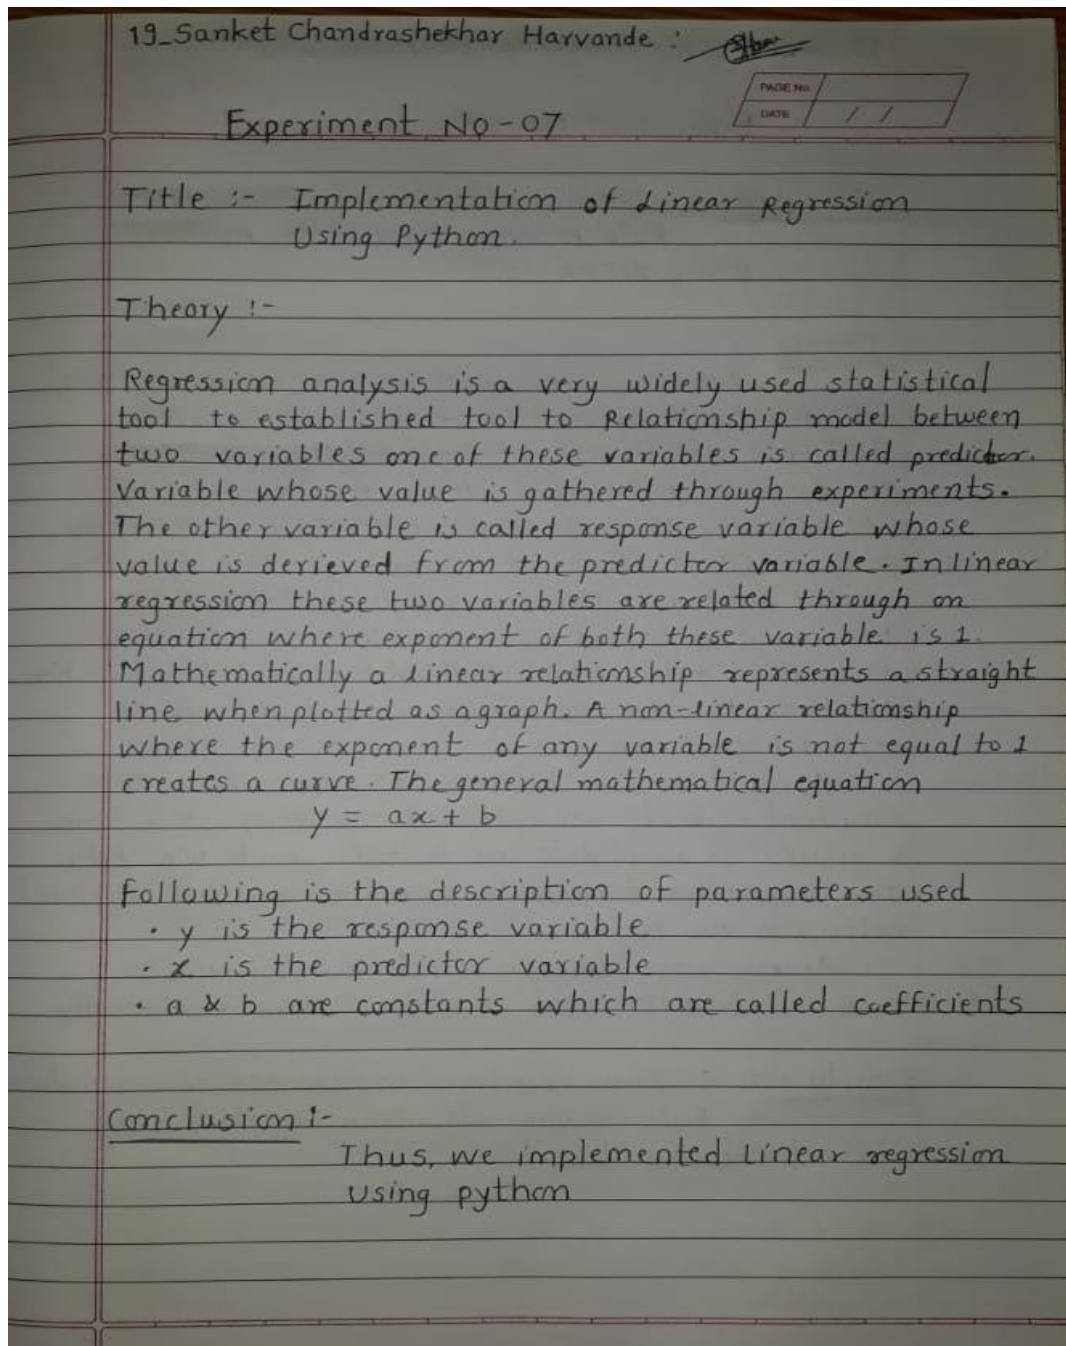 19_Sanket Chandrashekhar Harvande :
PAGE No.
DATE / /
Experiment No-07
Title :- Implementation of Linear Regression
Using Python.
Theory :-
Regression analysis is a very widely used statistical
tool to established tool to Relationship model between
two variables one of these variables is called predictor.
Variable whose value is gathered through experiments.
The other variable is called response variable whose
value is derieved from the predictor variable. In linear
regression these two variables are related through an
equation where exponent of both these variable is 1.
Mathematically a linear relationship represents a straight
line when plotted as a graph. A non-linear relationship
where the exponent of any variable is not equal to 1
creates a curve. The general mathematical equation
y = ax + b
Following is the description of parameters used
· y is the response variable
· x is the predictor variable
· a & b are constants which are called coefficients
Conclusion :-
Thus, we implemented Linear regression
using python